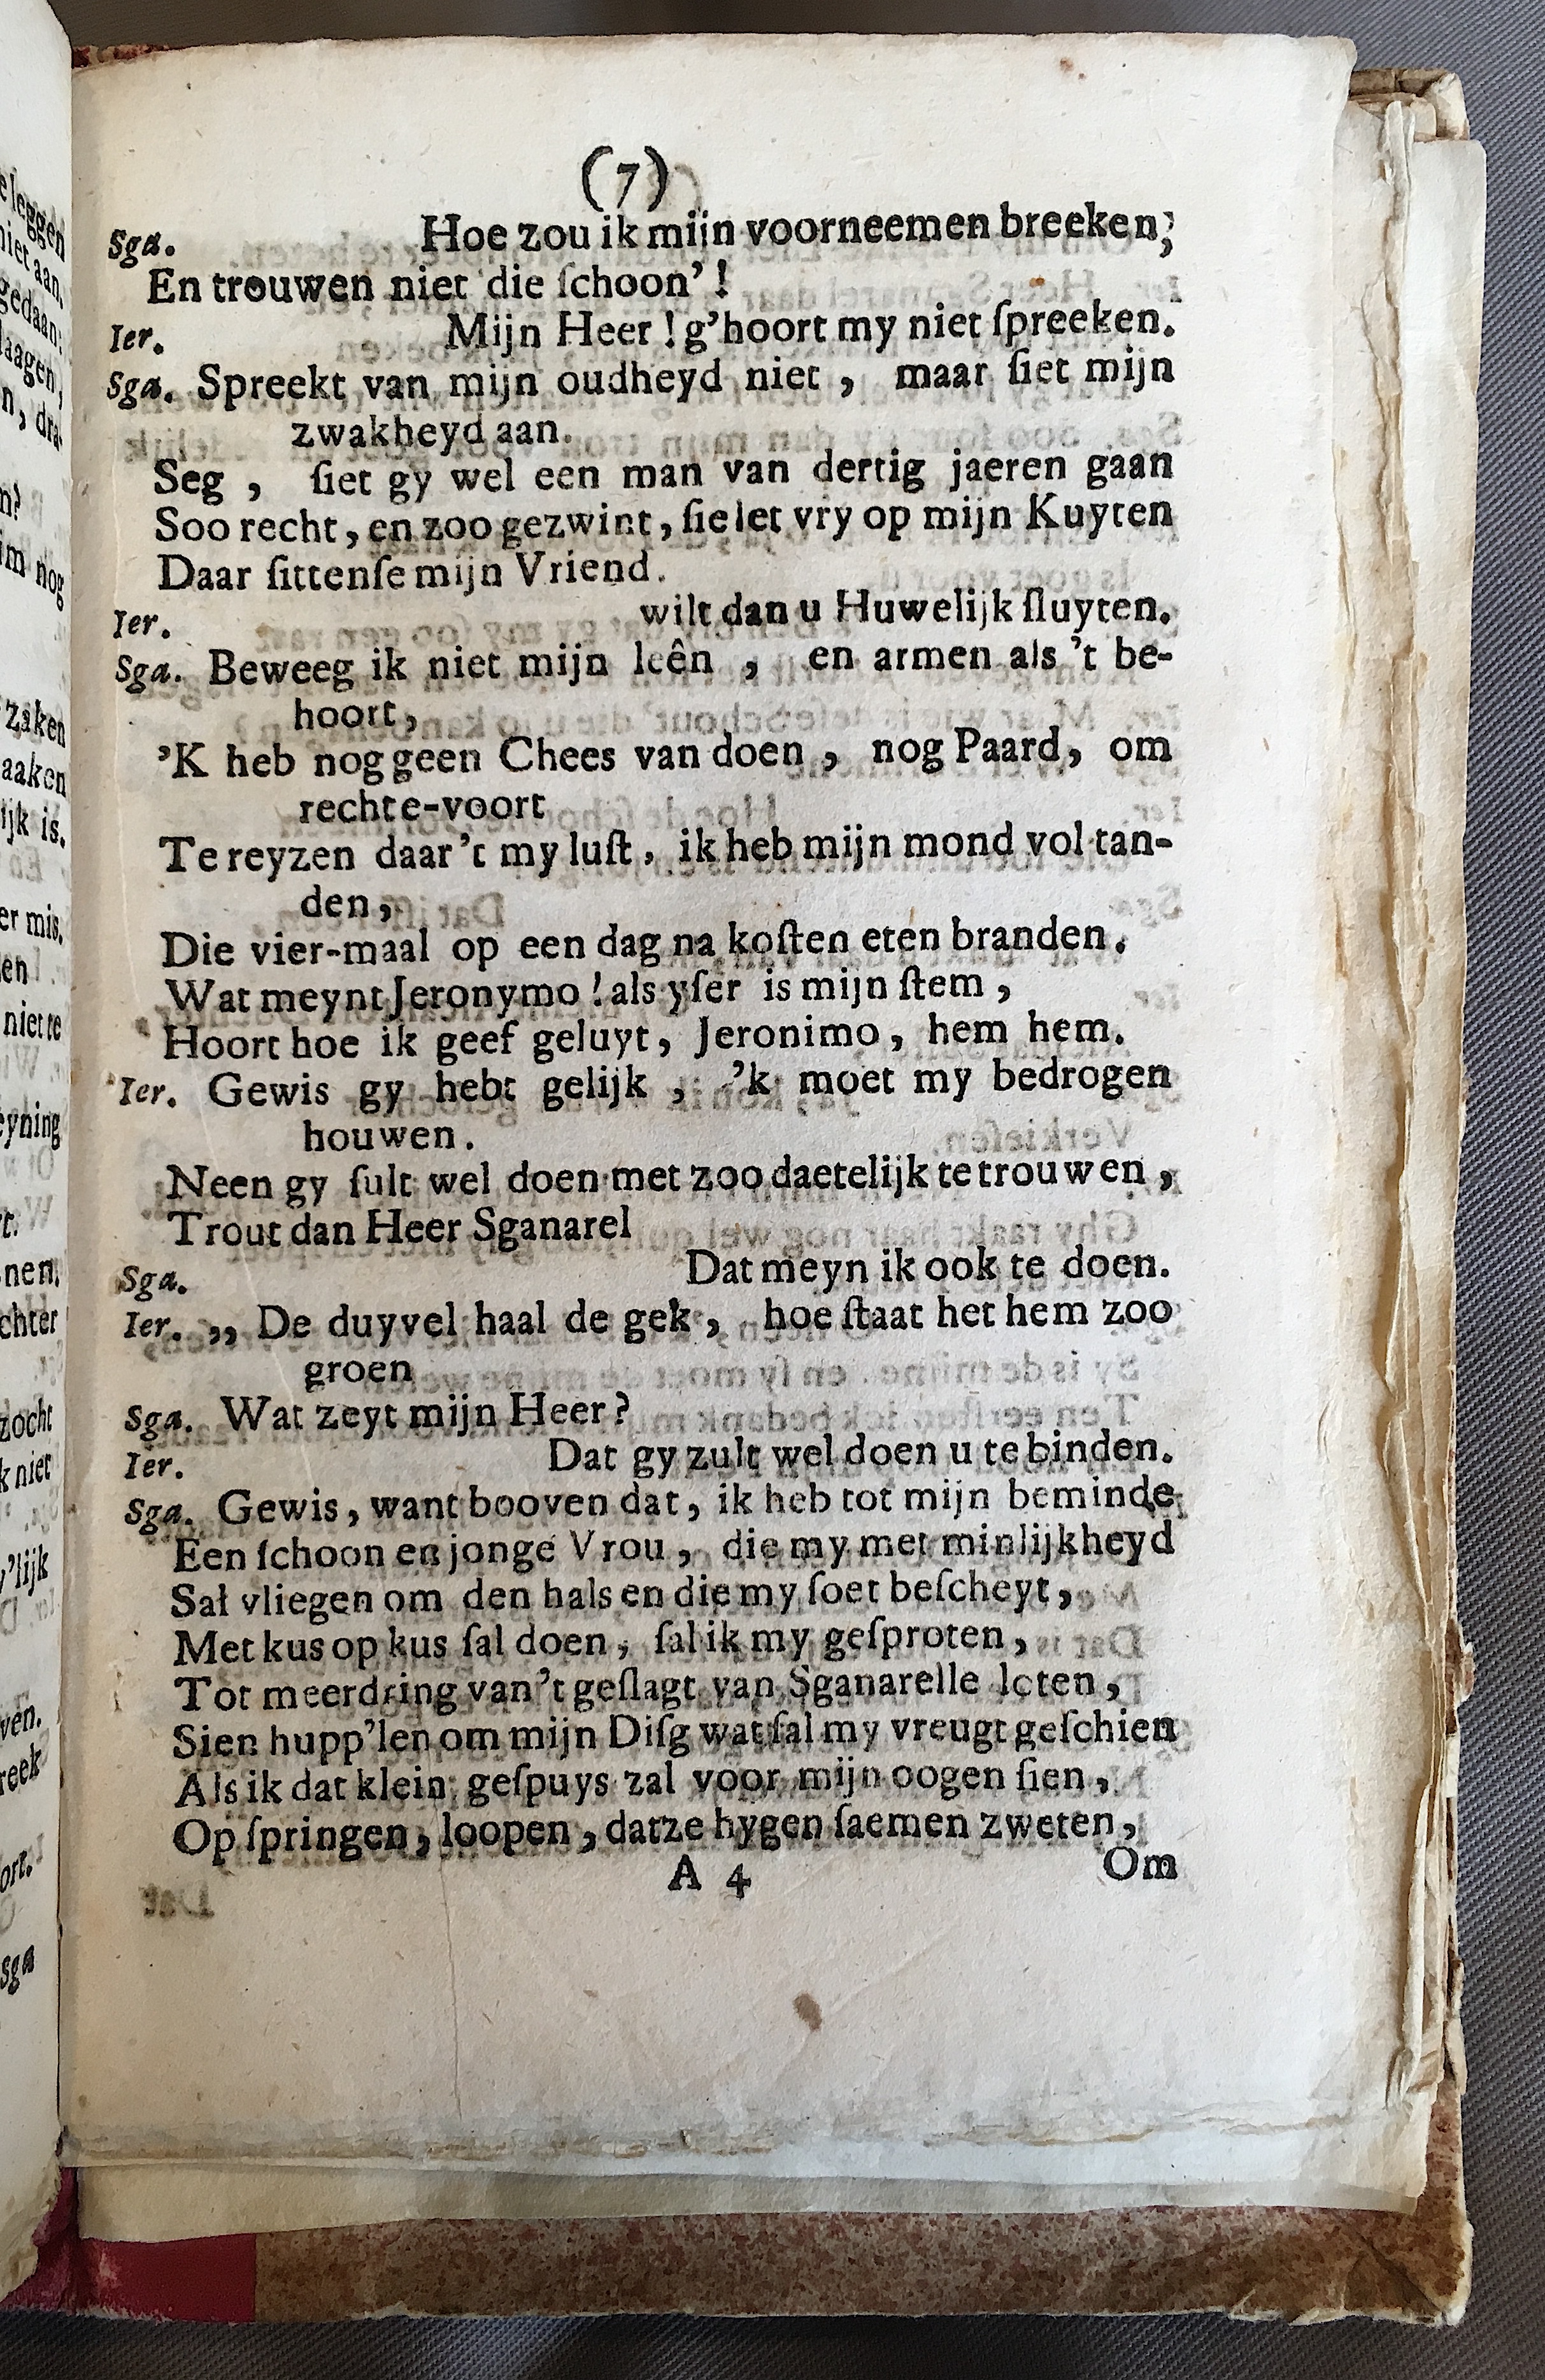 (7)
Sga. Hoe zou ik mijn voorneemen breeken;
En trouwen niet die ſchoon' !
Ier. Mijn Heer ! g'hoort my niet ſpreeken.
Sga. Spreekt van mijn oudheyd niet , maar ſiet mijn
zwakheyd aan.
Seg , ſiet gy wel een man van dertig jaeren gaan
Soo recht, en zoo gezwint, ſie let vry op mijn Kuyten
Daar ſittenſe mijn Vriend.
Ier. wilt dan u Huwelijk ſluyten.
Sga. Beweeg ik niet mijn leên , en armen als 't be-
hoort,
'K heb nog geen Chees van doen , nog Paard, om
rechte-voort
Te reyzen daar 't my luſt, ik heb mijn mond vol tan-
den,
Die vier-maal op een dag na koſten eten branden.
Wat meynt Jeronymo ! als yſer is mijn ſtem ,
Hoort hoe ik geef geluyt, Jeronimo, hem hem.
Ier. Gewis gy hebt gelijk , 'k moet my bedrogen
houwen.
Neen gy ſult wel doen met zoo daetelijk te trouwen ,
Trout dan Heer Sganarel
Sga. Dat meyn ik ook te doen.
Ier. ,, De duyvel haal de gek , hoe ſtaat het hem zoo
groen
Sga. Wat zeyt mijn Heer?
Ier. Dat gy zult wel doen u te binden.
Sga. Gewis, want booven dat, ik heb tot mijn beminde
Een ſchoon en jonge Vrou , die my met minlijkheyd
Sal vliegen om den hals en die my ſoet beſcheyt,
Met kus op kus ſal doen, ſal ik my geſproten,
Tot meerdring van 't geſlagt van Sganarelle loten,
Sien hupp'len om mijn Diſg wat ſal my vreugt geſchien
Als ik dat klein geſpuys zal voor mijn oogen ſien,
Op ſpringen, loopen, datze hygen ſaemen zweten,
A 4 Om